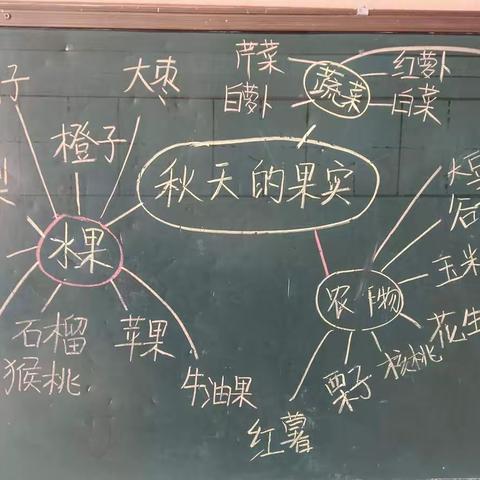 芹菜
白萝卜
蔬菜
红萝卜
白菜
子
大枣
橙子
秋天的果实
水果
石榴
猴桃
苹果
牛油果
农作物
玉米
花生
核桃
栗子
红薯